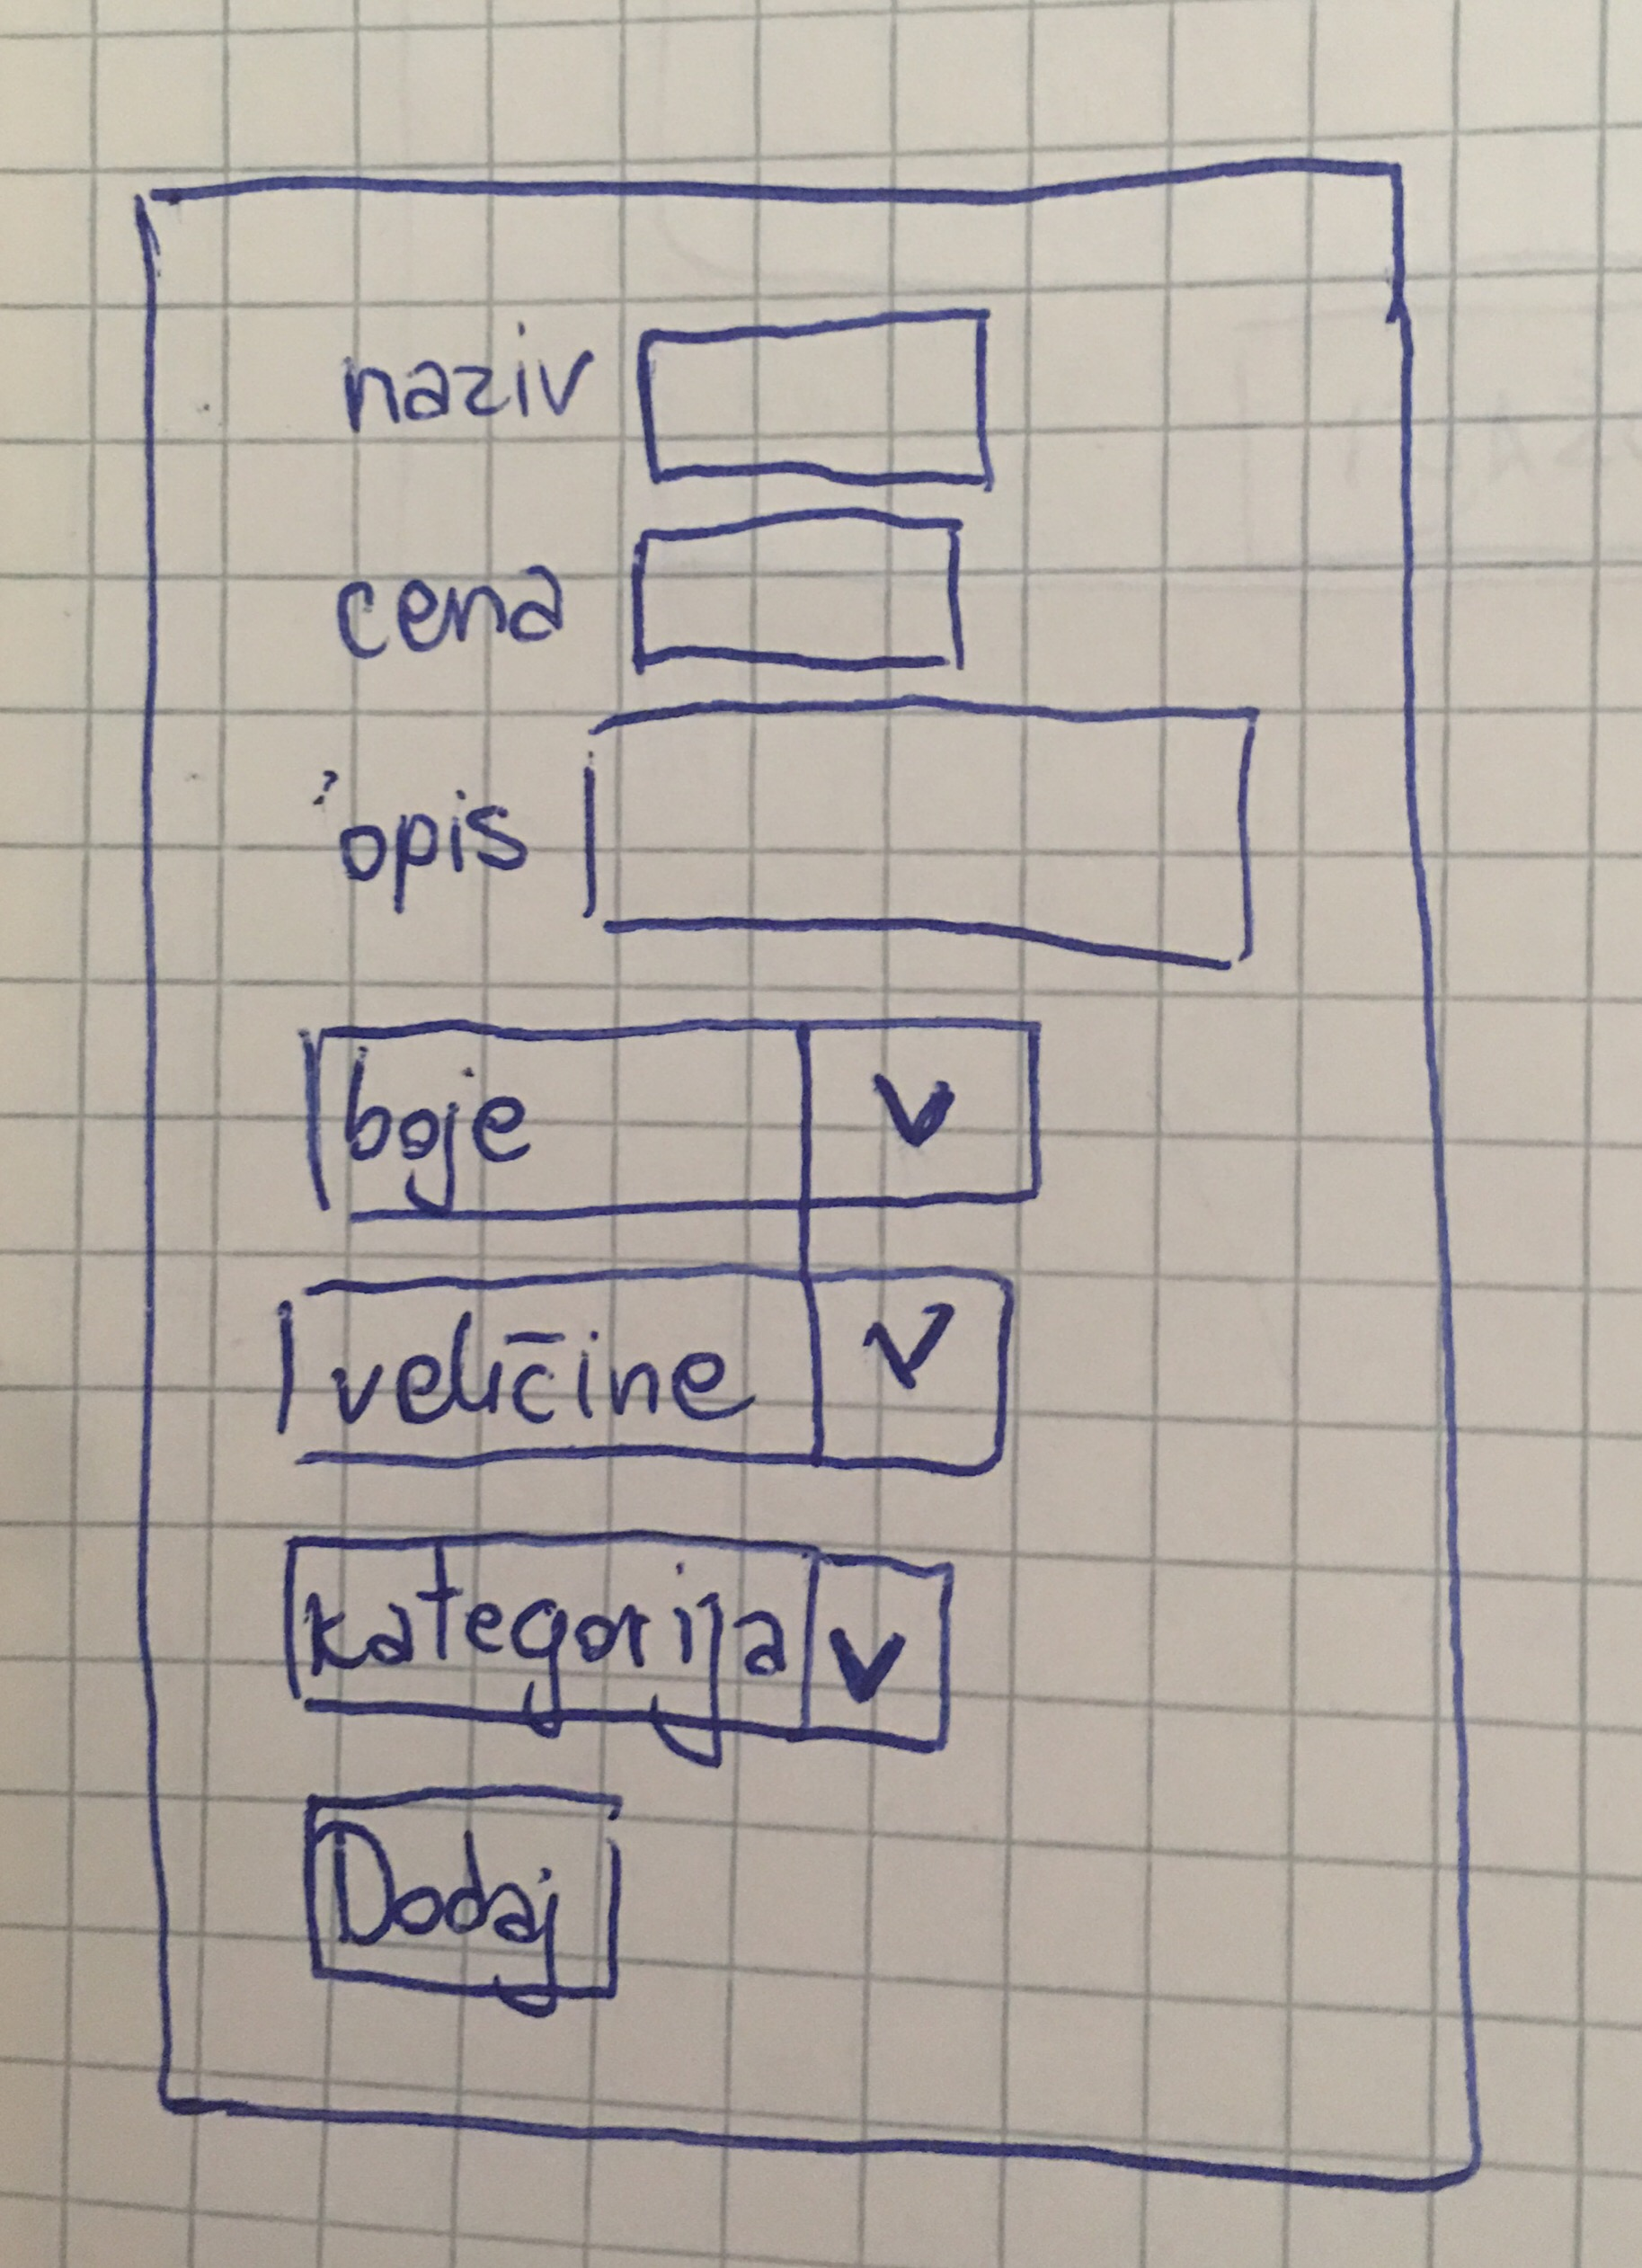 naziv
cena
opis
boje
veličine
kategorija
Dodaj